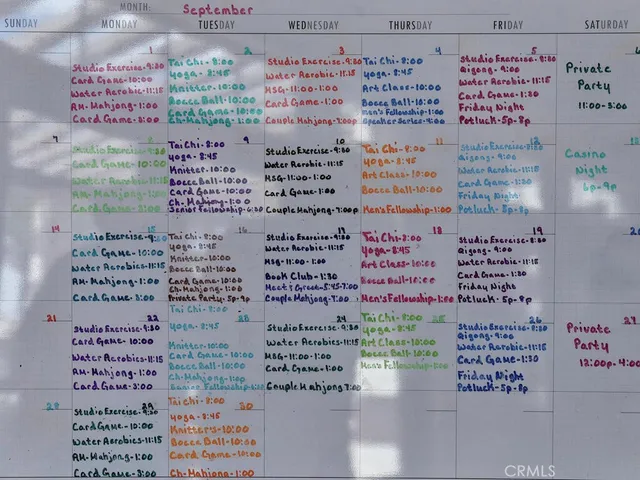 MONTH: September
SUNDAY MONDAY TUESDAY WEDNESDAY THURSDAY FRIDAY SATURDAY
1
Studio Exercise-9:30
Card Game-10:00
Water Aerobic-11:15
AM-Mahjong-1:00
Card Game-3:00
2
Tai Chi-8:00
Yoga-8:45
Knitter-10:00
Bocce Ball-10:00
Card Game-10:00
Ch-Mahjong-1:00
3
Studio Exercise-9:30
Water Aerobic-11:15
MSG-11:00-1:00
Card Game-1:00
Couple Mahjong-7:00p
4
Tai Chi-8:00
Yoga-8:45
Art Class-10:00
Bocce Ball-10:00
Men's Fellowship-1:00
Speaker Series-
5
Studio Exercise-9:30
Qigong-9:00
Water Aerobic-11:15
Card Game-1:30
Friday Night
Potluck-5p-8p
6
Private
Party
11:00-3:00
7
8
Studio Exercise-9:30
Card Game-10:00
Water Aerobic-11:15
AM-Mahjong-1:00
Card Game-3:00
9
Tai Chi-8:00
Yoga-8:45
Knitter-10:00
Bocce Ball-10:00
Card Game-10:00
Ch-Mahjong-1:00
Senior Fellowship-6:30
10
Studio Exercise-9:30
Water Aerobic-11:15
MSG-11:00-1:00
Card Game-1:00
Couple Mahjong-7:00p
11
Tai Chi-8:00
Yoga-8:45
Art Class-10:00
Bocce Ball-10:00
Men's Fellowship-1:00
12
Studio Exercise-9:30
Qigong-9:00
Water Aerobic-11:15
Card Game-1:30
Friday Night
Potluck-5p-8p
13
Casino
Night
6p-9p
14
15
Studio Exercise-9:30
Card Game-10:00
Water Aerobic-11:15
AM-Mahjong-1:00
Card Game-3:00
16
Tai Chi-8:00
Yoga-8:45
Knitter-10:00
Bocce Ball-10:00
Card Game-10:00
Ch-Mahjong-1:00
Private Party-5p-9p
Studio Exercise-9:30
Water Aerobic-11:15
MSG-11:00-1:00
Book Club-1:30
Meet & Greet-5:45-7:00
Couple Mahjong-7:00
18
Tai Chi-8:00
Yoga-8:45
Art Class-10:00
Bocce Ball-10:00
Men's Fellowship-1:00
19
Studio Exercise-9:30
Qigong-9:00
Water Aerobic-11:15
Card Game-1:30
Friday Night
Potluck-5p-8p
20
21
22
Studio Exercise-9:30
Card Game-10:00
Water Aerobic-11:15
AM-Mahjong-1:00
Card Game-3:00
23
Tai Chi-8:00
Yoga-8:45
Knitter-10:00
Card Game-10:00
Bocce Ball-10:00
Ch-Mahjong-1:00
Senior Fellowship-
24
Studio Exercise-9:30
Water Aerobics-11:15
MSG-11:00-1:00
Card Game-1:00
Couple Mahjong 7:00
25
Tai Chi-8:00
Yoga-8:45
Art Class-10:00
Bocce Ball-10:00
Men's Fellowship-1:00
26
Studio Exercise-9:30
Qigong-9:00
Water Aerobic-11:15
Card Game-1:30
Friday Night
Potluck-5p-8p
27
Private
Party
12:00p-4:00
28
29
Studio Exercise-9:30
Card Game-10:00
Water Aerobics-11:15
AM-Mahjong-1:00
Card Game-3:00
30
Tai Chi-8:00
Yoga-8:45
Knitter's-10:00
Bocce Ball-10:00
Card Game-10:00
Ch-Mahjong-1:00
CRMLS